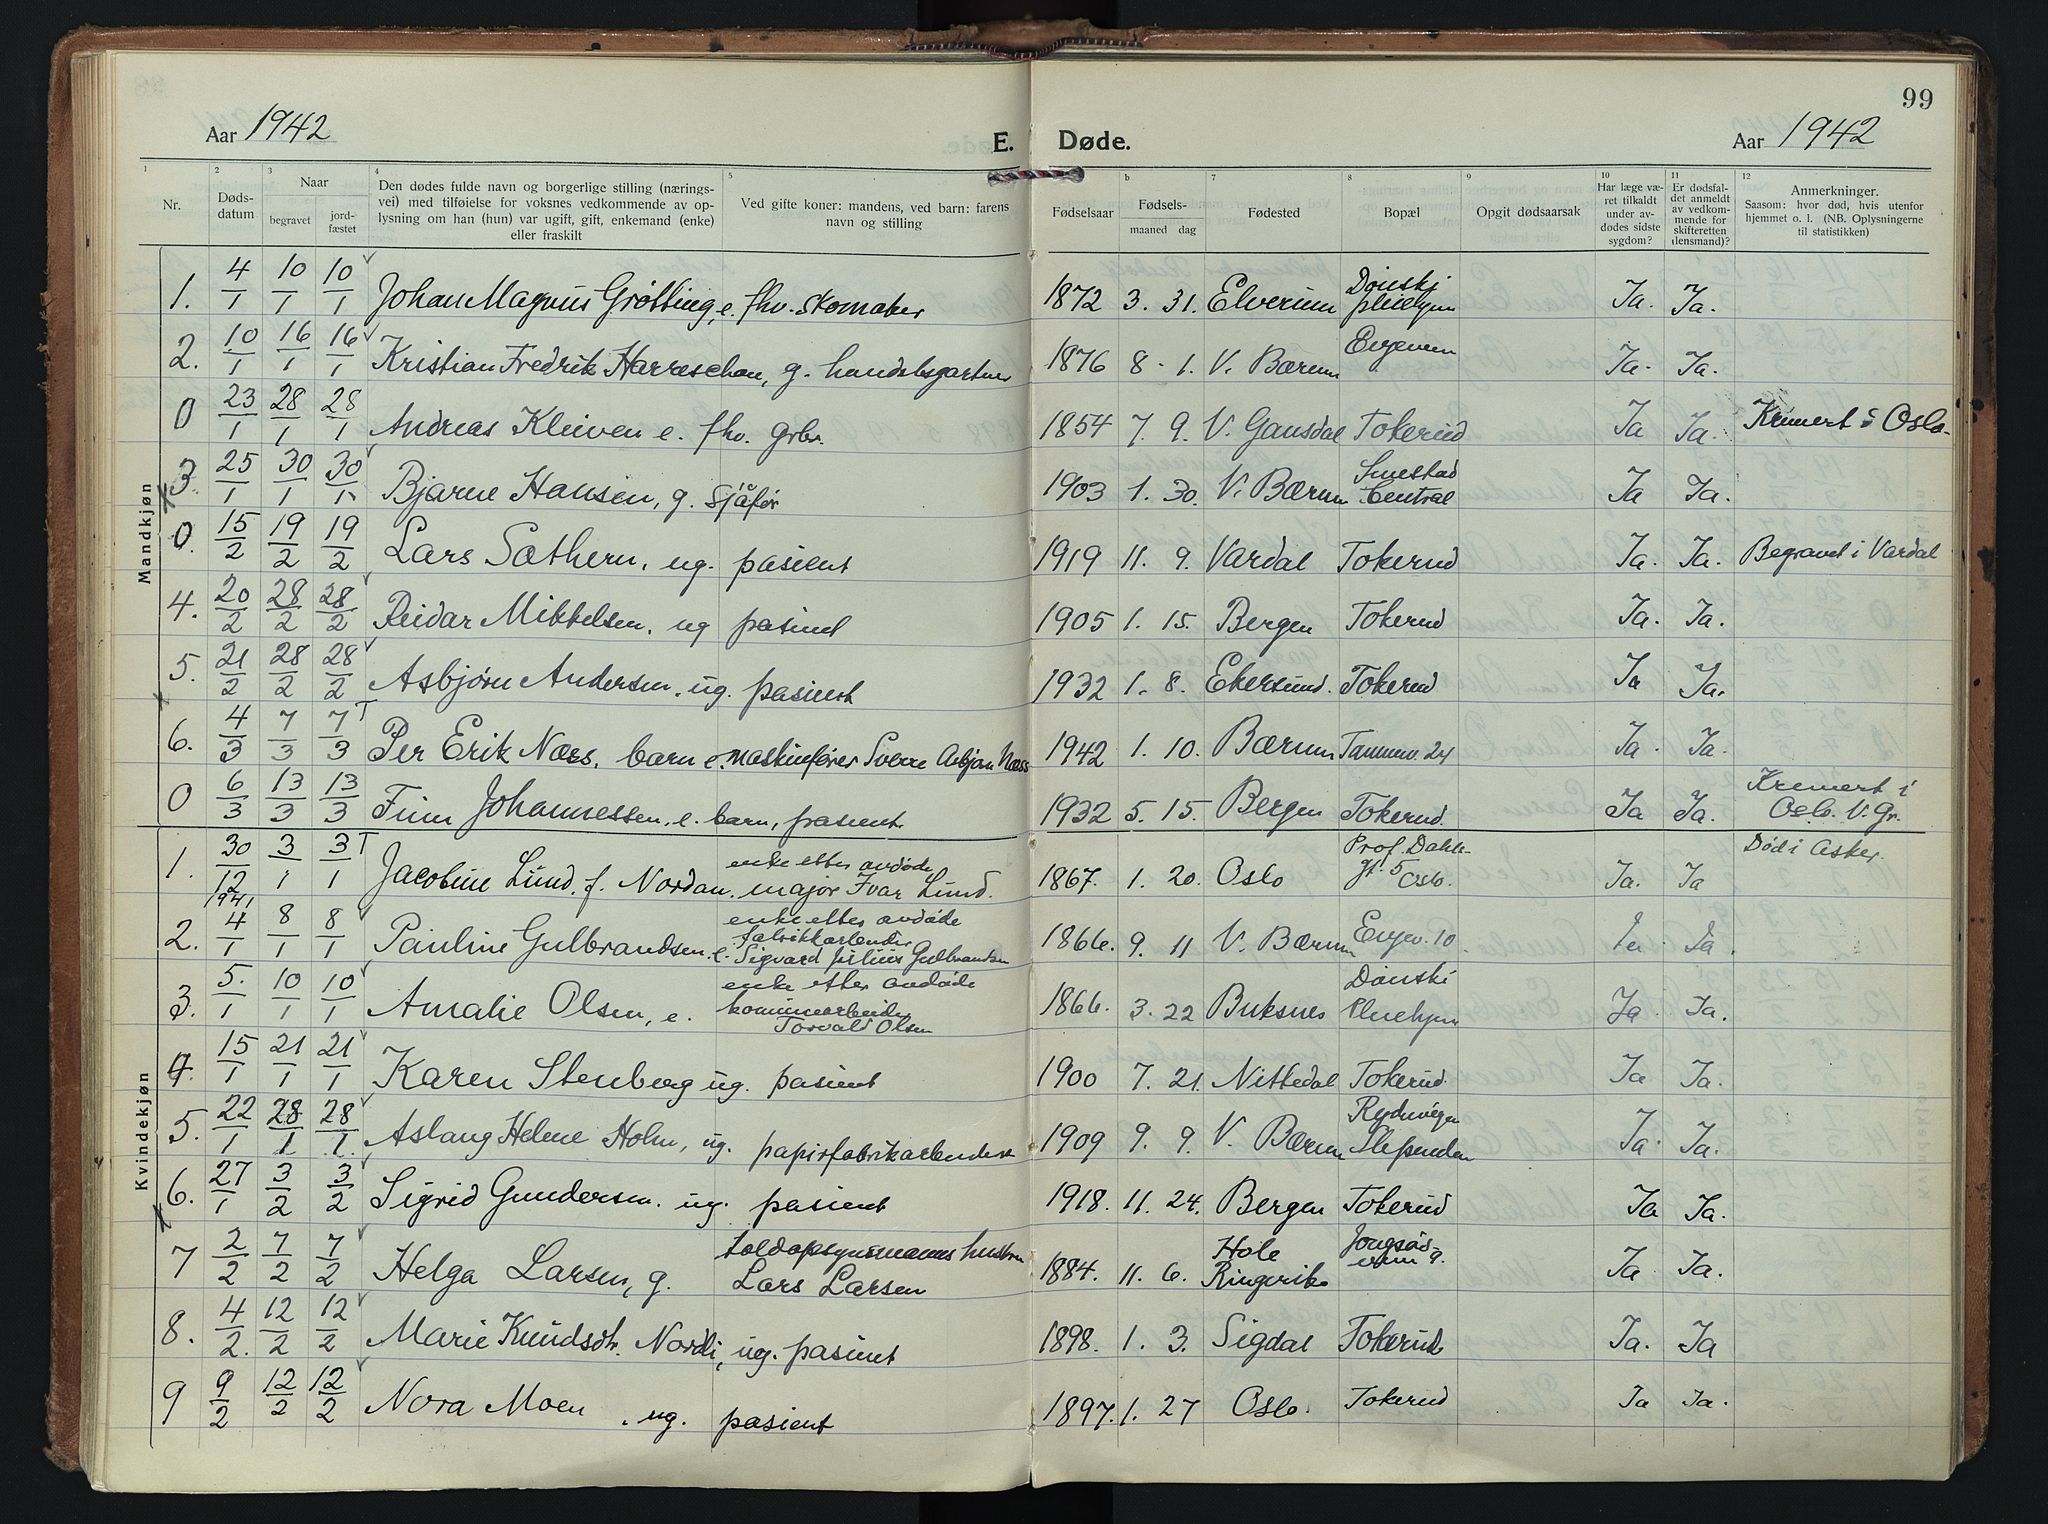 99
Aar 1942 E. Døde. Aar 1942
1 2 3 4 5 6 7 8 9 10 11 12
Nr.
Dødsdatum
Naar
begravet
jordfæstet
Den dødes fulde navn og borgerlige stilling (næringsvei) med tilføielse for voksnes vedkommende av oplysning om han (hun) var ugift, gift, enkemand (enke) eller fraskilt
Ved gifte koner: mandens, ved barn: farens navn og stilling
Fødselsaar
Fødsels-
maaned dag
Fødested
Bopæl
Opgit dødsaarsak
Har læge været tilkaldt under avdødes sidste sygdom?
Er dødsfaldet anmeldt av vedkommende for skifteretten (lensmand)?
Anmerkninger.
Saasom: hvor død, hvis utenfor hjemmet o. l. (NB. Oplysningerne til statistikken)
Mandkjøn
1. 4/1 10/1 10/1 Johan Magnus Grøtting, e. fhv. skomaker 1872 3. 31. Elverum Dønski pleiehjem Ja. Ja.
2. 10/1 16/1 16/1 Kristian Fredrik Harreschou, g. handelsgartner 1876 8 - 1. V. Bærum Ja. Ja.
0 23/1 28/1 28/1 Andreas Kleiven e. fhv. grbr. 1854 7. 9. V. Gausdal Tokerud Ja Ja. Kremert i Oslo.
3. 25/1 30/1 30/1 Bjarne Hansen, g. sjåfør 1903 1. 30. V. Bærum Smestad Central Ja Ja.
0. 15/2 19/2 19/2 Lars Sæthern, ug. pasient 1919 11. 9. Vardal Tokerud Ja. Ja. Begravet i Vardal
4. 20/2 28/2 28/2 Reidar Mikkelsen, ug pasient 1905 1. 15. Bergen Tokerud Ja. Ja.
5. 21/2 28/2 28/2 Asbjørn Andersen, ug. pasient 1932 1. 8. Ekersund. Tokerud Ja Ja.
6. 4/3 7/3 7/3 T Per Erik Næss, barn e. maskinfører Sverre Asbjørn Næss 1942 1. 10. Bærum Tanumv. 24 Ja. Ja.
0 6/3 13/3 13/3 Finn Johannessen, e. barn, pasient. 1932 5. 15. Bergen Tokerud. Ja Ja. Kremert i Oslo. V. Gr.
Kvindekjøn
1. 30/12 1941 3/1 3/1 T Jacobine Lund, f. Nordan. enke etter avdøde major Ivar Lund. 1867. 1. 20. Oslo Prof. Dahls gt. 5 Oslo. Ja. Ja Død i Asker.
2. 4/1 8/1 8/1 Pauline Gulbrandsen, e. enke etter avdøde fabrikkarbeider Sigvard Julius Gulbrandsen 1866. 9. 11 V. Bærum 10 Ja. Ja
3. 5/1 10/1 10/1 Amalie Olsen, e. enke etter avdøde kommunearbeider Torvald Olsen 1866. 3. 22 Buksnes Dønski Pleiehjem Ja. Ja.
4. 15/1 21/1 21/1 Karen Stenberg ug. pasient 1900 7. 21. Nittedal Tokerud. Ja Ja.
5. 22/1 28/1 28/1. Aslaug Helene Holm, ug. papirfabrikarbeiderske 1909 9. 9. V. Bærum Slependen Ja. Ja.
6. 27/1 3/2 3/2 Sigrid Gundersen. ug. pasient 1918. 11. 24. Bergen Tokerud Ja Ja.
7 2/2 7/2 7/2 Helga Larsen, g. toldopsynsmanns hustru Lars Larsen 1884. 11. 6. Hole Ringerike Jongsåsveien 9. Ja. Ja.
8. 4/2. 12/2 12/2 Marie Knudsdtr. Nordli, ug. pasient 1898. 1. 3. Sigdal Tokerud Ja. Ja
9 9/2 12/2 12/2 Nora Moen, ug. pasient 1897. 1. 27 Oslo. Tokerud Ja Ja.